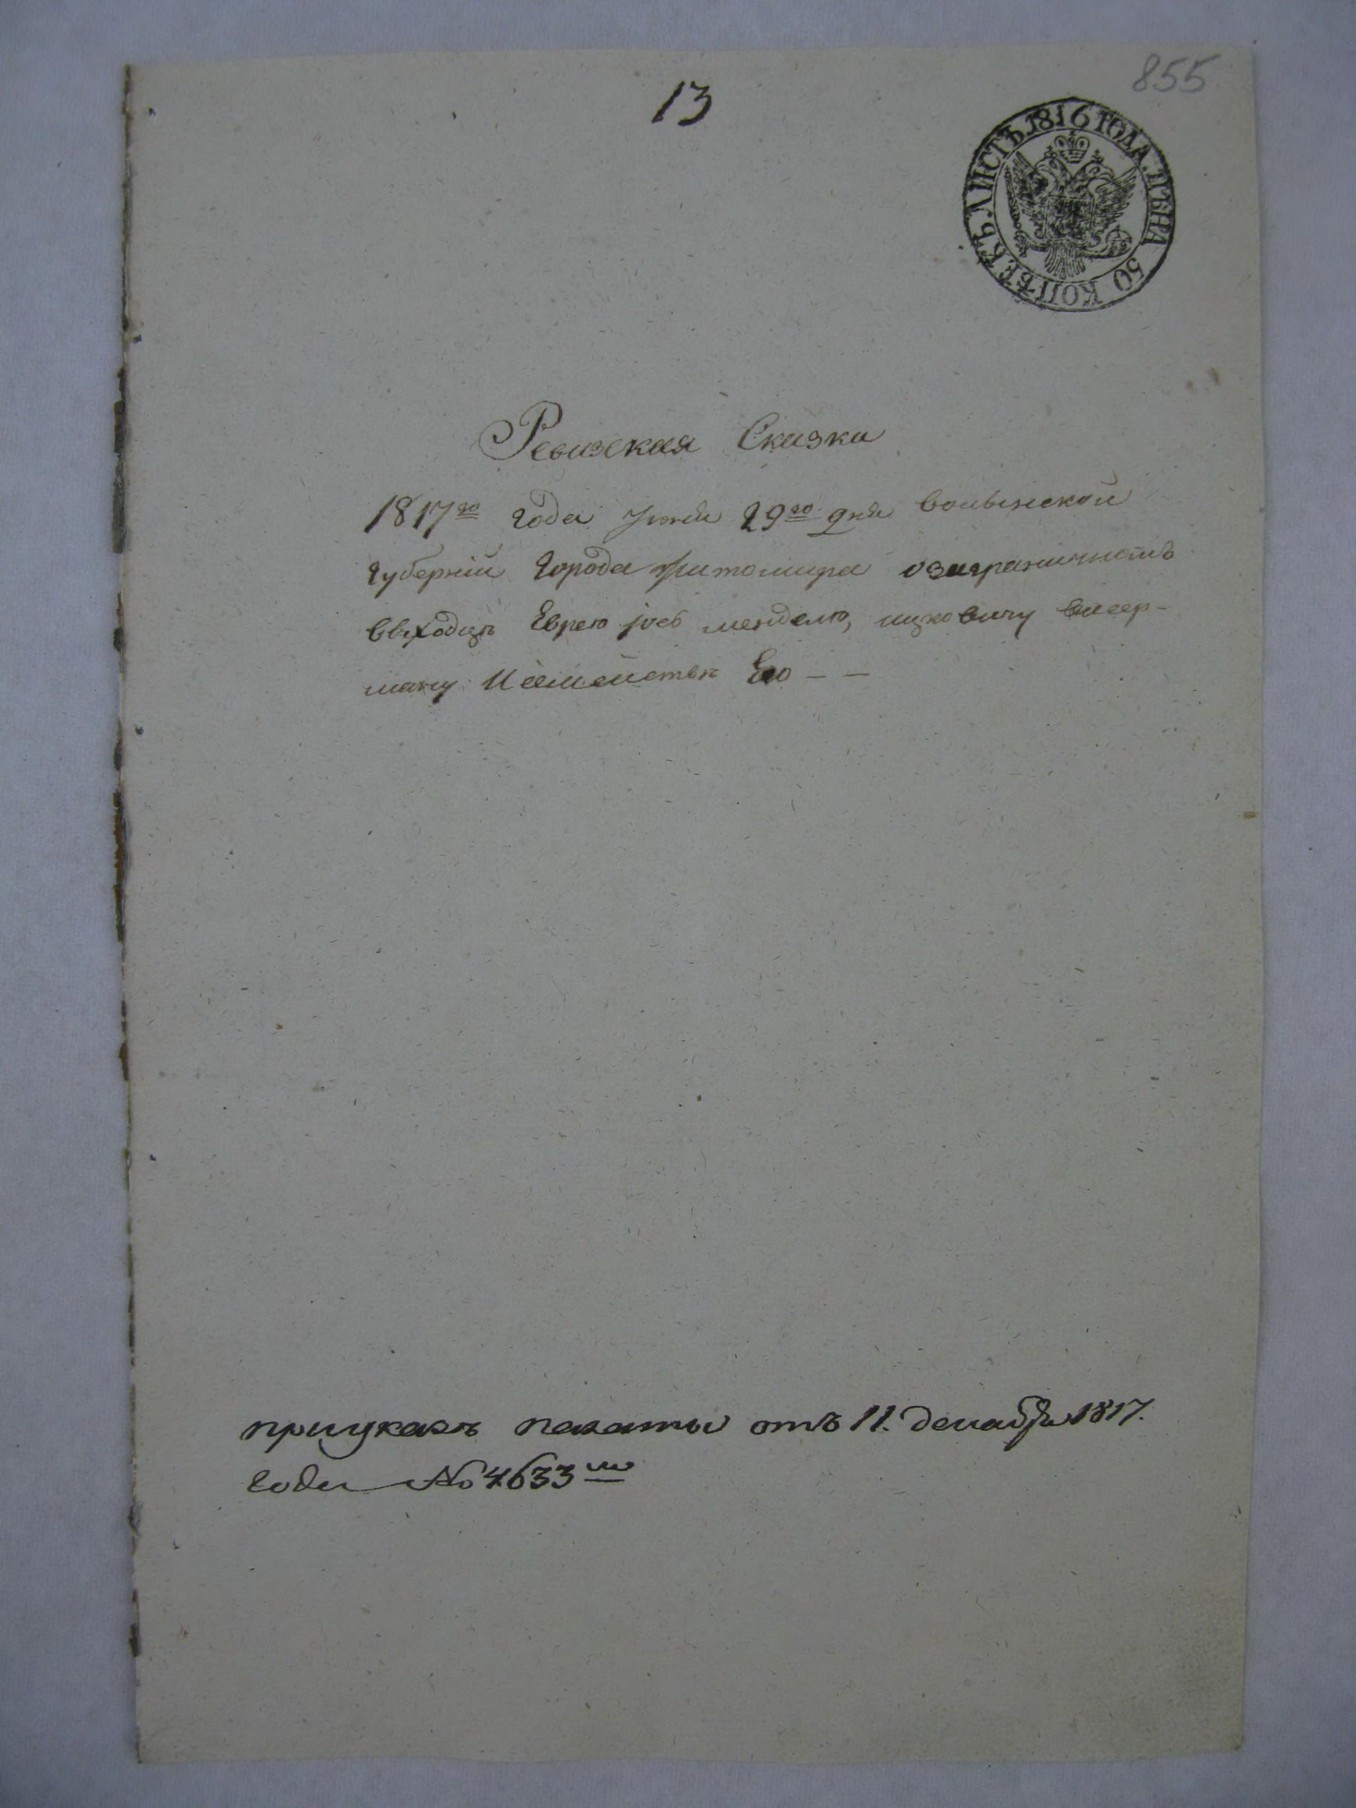 855
13
ЛИСТЪ 1816 ГОДА. ЦѢНА 50 КОПѢЕКЪ
Ревизская Сказка
1817го года 29го дня волынской
губернїи города житомира озаграничномъ
выходцѣ Еврею менделю, ицковичу васер-
ману И семействѣ Его – –
приуказѣ палаты отъ 11. декабря 1817.
года № 4633